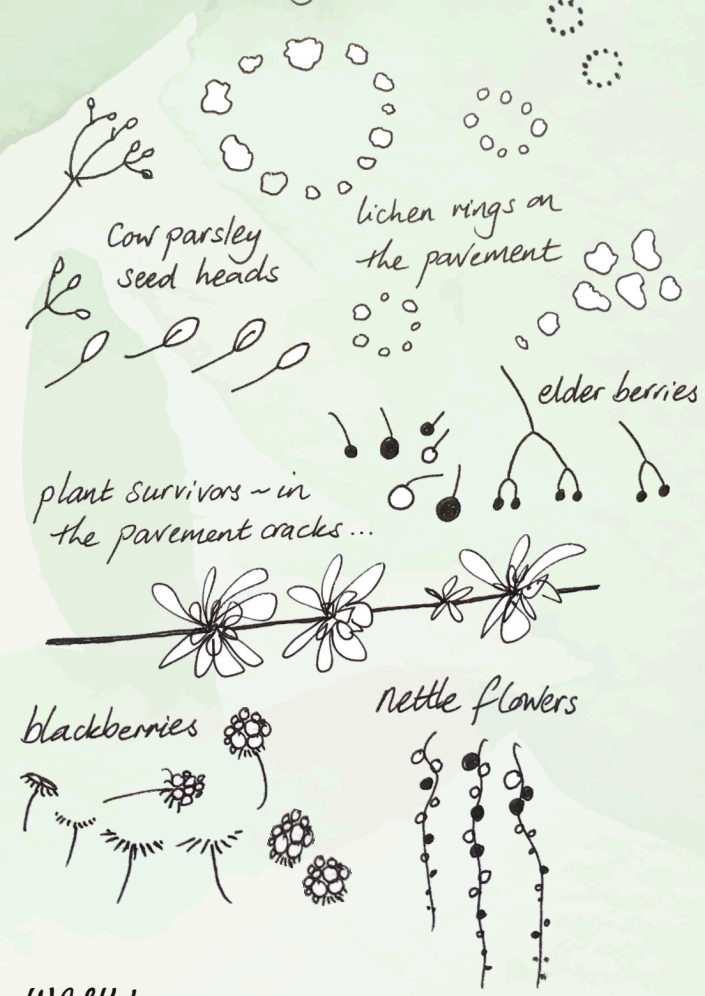 Cow parsley
seed heads
lichen rings on
the pavement
elder berries
plant survivors ~ in
the pavement cracks...
blackberries
nettle flowers